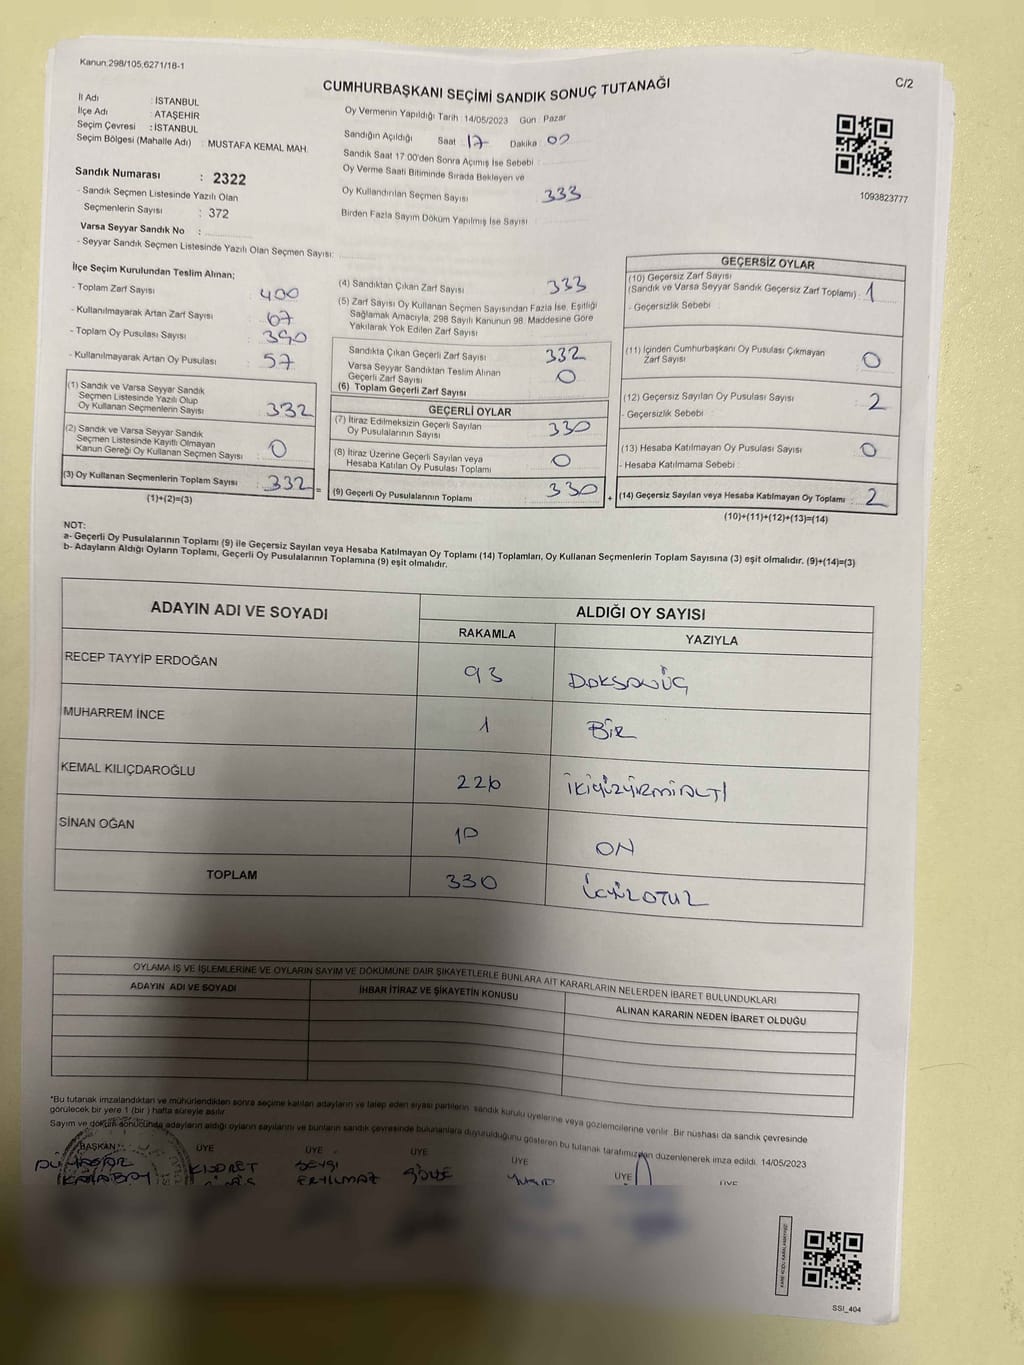 Kanun:298/105,6271/18-1
C/2
CUMHURBAŞKANI SEÇİMİ SANDIK SONUÇ TUTANAĞI
İl Adı : İSTANBUL
İlçe Adı : ATAŞEHİR
Seçim Çevresi : İSTANBUL
Seçim Bölgesi (Mahalle Adı) : MUSTAFA KEMAL MAH.
Sandık Numarası : 2322
- Sandık Seçmen Listesinde Yazılı Olan
Seçmenlerin Sayısı : 372
Varsa Seyyar Sandık No :
- Seyyar Sandık Seçmen Listesinde Yazılı Olan Seçmen Sayısı:
Oy Vermenin Yapıldığı Tarih : 14/05/2023 Gün : Pazar
Sandığın Açıldığı Saat : 17 Dakika : 00
Sandık Saat 17:00'den Sonra Açımış İse Sebebi :
Oy Verme Saati Bitiminde Sırada Bekleyen ve
Oy Kullandırılan Seçmen Sayısı : 333
Birden Fazla Sayım Döküm Yapılmış İse Sayısı :
1093823777
İlçe Seçim Kurulundan Teslim Alınan;
- Toplam Zarf Sayısı : 400
- Kullanılmayarak Artan Zarf Sayısı : 67
- Toplam Oy Pusulası Sayısı : 390
- Kullanılmayarak Artan Oy Pusulası : 57
(1) Sandık ve Varsa Seyyar Sandık
Seçmen Listesinde Yazılı Olup
Oy Kullanan Seçmenlerin Sayısı : 332
(2) Sandık ve Varsa Seyyar Sandık
Seçmen Listesinde Kayıtlı Olmayan
Kanun Gereği Oy Kullanan Seçmen Sayısı : 0
(3) Oy Kullanan Seçmenlerin Toplam Sayısı : 332
(1)+(2)=(3)
(4) Sandıktan Çıkan Zarf Sayısı : 333
(5) Zarf Sayısı Oy Kullanan Seçmen Sayısından Fazla İse, Eşitliği
Sağlamak Amacıyla, 298 Sayılı Kanunun 98. Maddesine Göre
Yakılarak Yok Edilen Zarf Sayısı :
Sandıkta Çıkan Geçerli Zarf Sayısı : 332
Varsa Seyyar Sandıktan Teslim Alınan
Geçerli Zarf Sayısı : 0
(6) Toplam Geçerli Zarf Sayısı
GEÇERLİ OYLAR
(7) İtiraz Edilmeksizin Geçerli Sayılan
Oy Pusulalarının Sayısı : 330
(8) İtiraz Üzerine Geçerli Sayılan veya
Hesaba Katılan Oy Pusulası Toplamı : 0
= (9) Geçerli Oy Pusulalarının Toplamı : 330 +
GEÇERSİZ OYLAR
(10) Geçersiz Zarf Sayısı
(Sandık ve Varsa Seyyar Sandık Geçersiz Zarf Toplamı) : 1
- Geçersizlik Sebebi :
(11) İçinden Cumhurbaşkanı Oy Pusulası Çıkmayan
Zarf Sayısı : 0
(12) Geçersiz Sayılan Oy Pusulası Sayısı : 2
- Geçersizlik Sebebi :
(13) Hesaba Katılmayan Oy Pusulası Sayısı : 0
- Hesaba Katılmama Sebebi :
(14) Geçersiz Sayılan veya Hesaba Katılmayan Oy Toplamı : 2
(10)+(11)+(12)+(13)=(14)
NOT:
a- Geçerli Oy Pusulalarının Toplamı (9) ile Geçersiz Sayılan veya Hesaba Katılmayan Oy Toplamı (14) Toplamları, Oy Kullanan Seçmenlerin Toplam Sayısına (3) eşit olmalıdır. (9)+(14)=(3)
b- Adayların Aldığı Oyların Toplamı, Geçerli Oy Pusulalarının Toplamına (9) eşit olmalıdır.
ADAYIN ADI VE SOYADI ALDIĞI OY SAYISI
RAKAMLA YAZIYLA
RECEP TAYYİP ERDOĞAN 93 DOKSANÜÇ
MUHARREM İNCE 1 BİR
KEMAL KILIÇDAROĞLU 226 İKİYÜZYİRMİALTI
SİNAN OĞAN 10 ON
TOPLAM 330 ÜÇYÜZOTUZ
OYLAMA İŞ VE İŞLEMLERİNE VE OYLARIN SAYIM VE DÖKÜMÜNE DAİR ŞİKAYETLERLE BUNLARA AİT KARARLARIN NELERDEN İBARET BULUNDUKLARI
ADAYIN ADI VE SOYADI İHBAR İTİRAZ VE ŞİKAYETİN KONUSU ALINAN KARARIN NEDEN İBARET OLDUĞU
*Bu tutanak imzalandıktan ve mühürlendikten sonra seçime katılan adayların ve talep eden siyasi partilerin sandık kurulu üyelerine veya gözlemcilerine verilir. Bir nüshası da sandık çevresinde
görülecek bir yere 1 (bir) hafta süreyle asılır.
Sayım ve döküm sonucunda adayların aldığı oyların sayılarını ve bunların sandık çevresinde bulunanlara duyurulduğunu gösteren bu tutanak tarafımızdan düzenlenerek imza edildi. 14/05/2023
BAŞKAN ÜYE ÜYE ÜYE ÜYE ÜYE ÜYE
KUDRET SEVGİ
ERYILMAZ
SSI_404